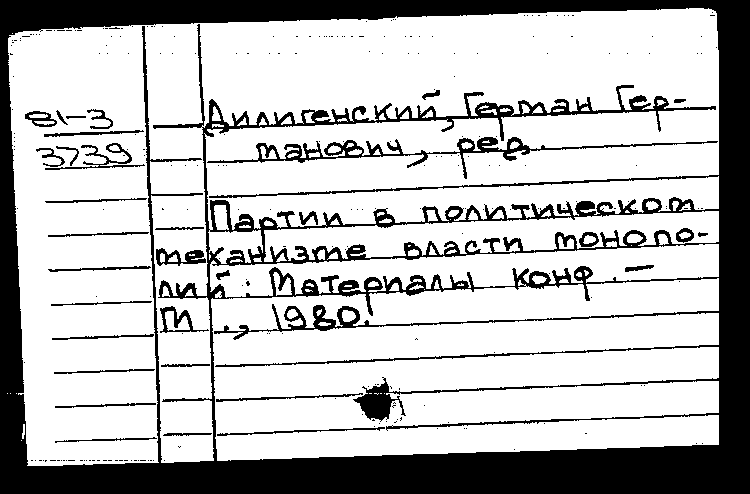 81-3
3739
Дилигенский, Герман Гер-
манович, ред.
Партии в политическом
механизме власти монопо-
лий: Материалы конф. —
М., 1980.